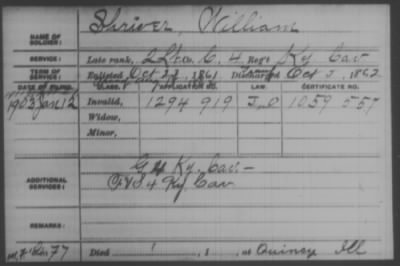 NAME OF SOLDIER: Shriver, William
SERVICE: Late rank, 2 Lt. Co. C, 4 Reg't Ky Cav
TERM OF SERVICE: Enlisted Oct 1861 Discharged Oct 3, 1862
DATE OF FILING. CLASS. APPLICATION NO. LAW. CERTIFICATE NO.
1903 Jan 12 Invalid, 1294 919 1059 557
Widow,
Minor,
ADDITIONAL SERVICES: G 4 Ky. Cav. —
F&S 4 Ky Cav
REMARKS:
77 Died , 1 , at Quincy Ill